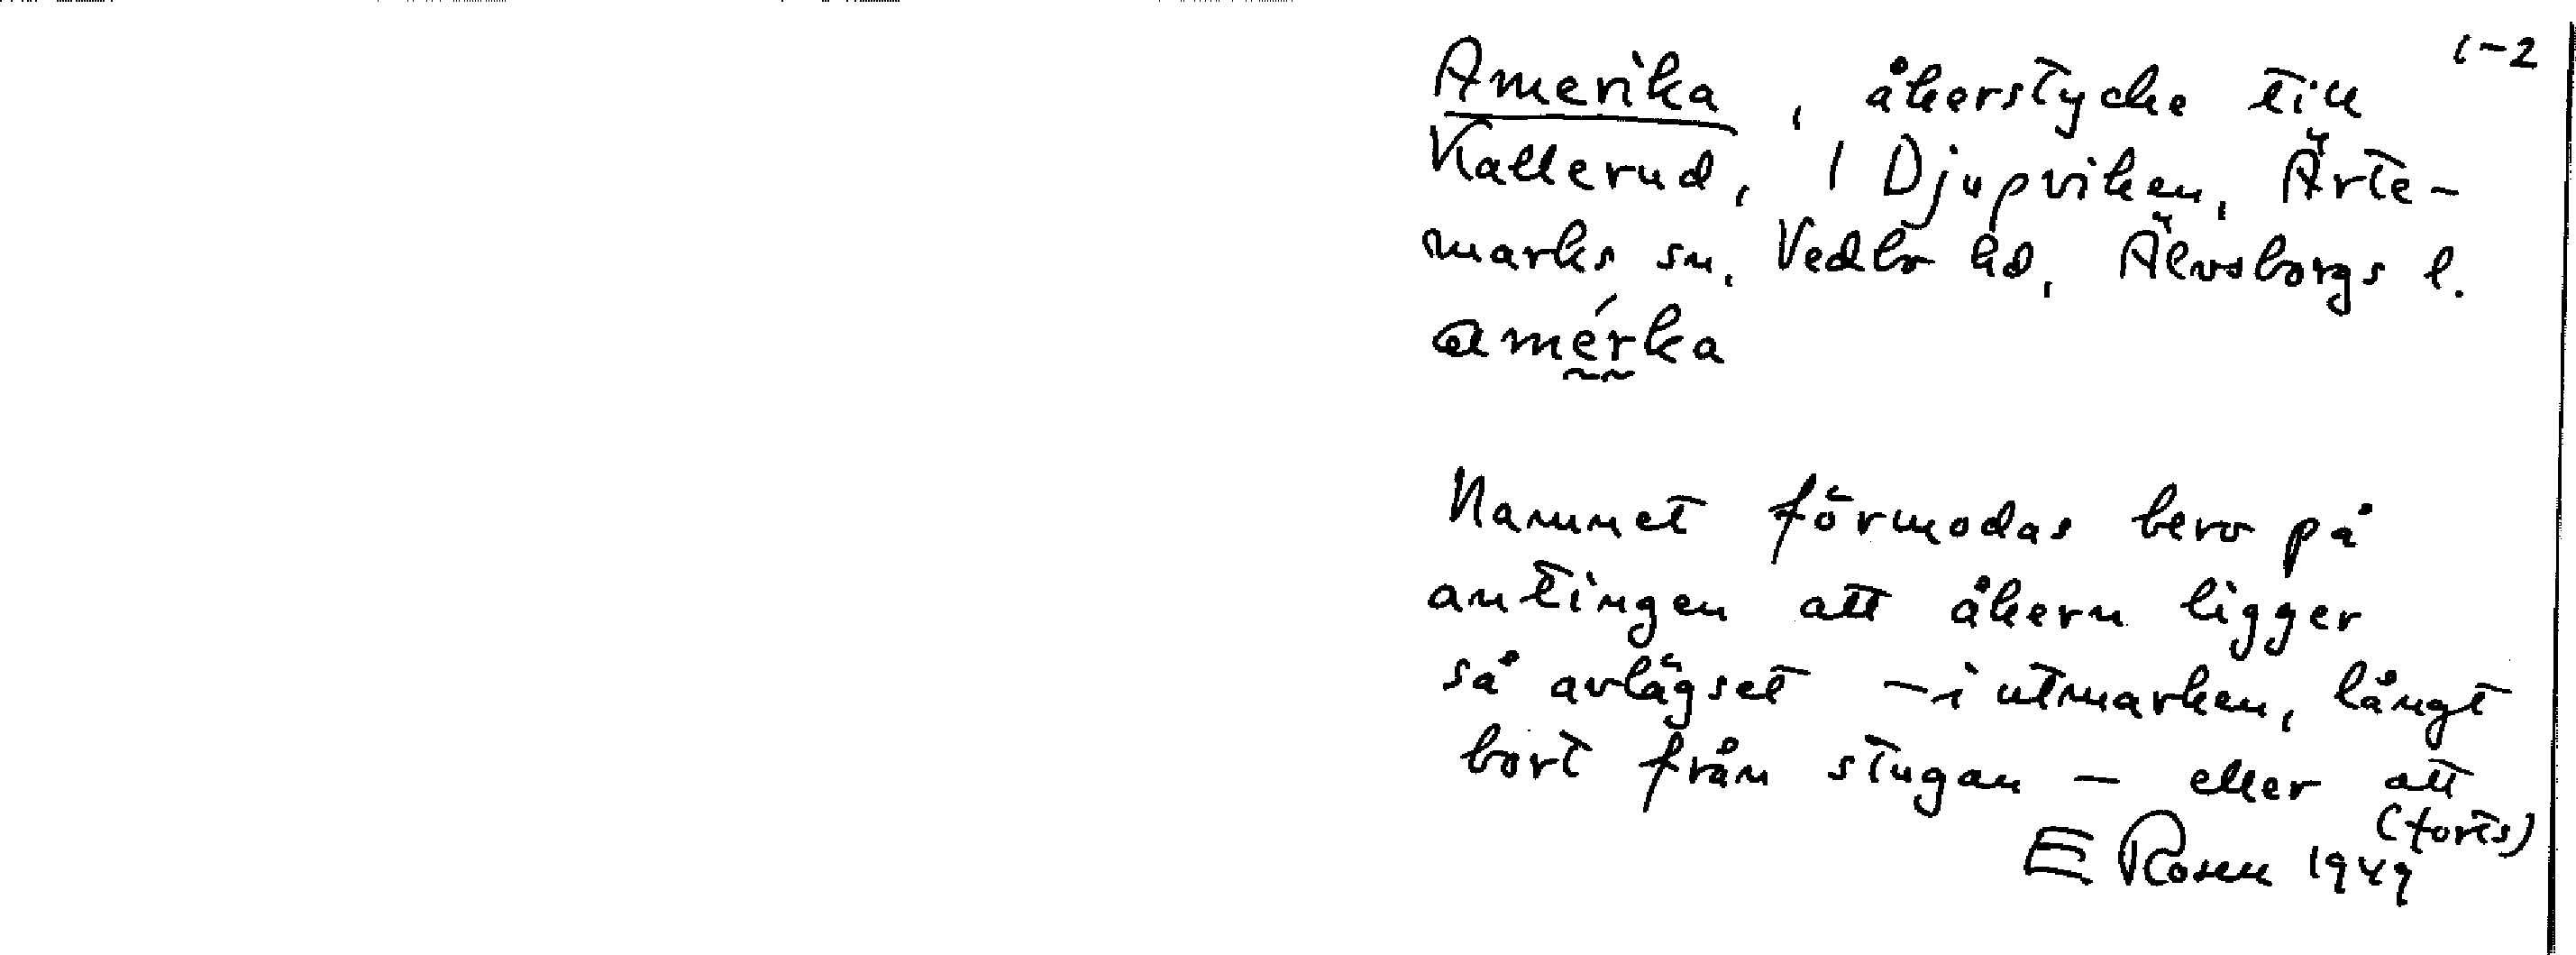 1-2
Amerika, åkerstycke till
Kallerud, 1 Djupviken, Ärte-
marks sn, Vedbo hd, Älvsborgs l.
amérka
Namnet förmodas bero på
antingen att åkern ligger
så avlägset – i utmarken, långt
bort från stugan – eller att
(forts)
E Rosen 1949